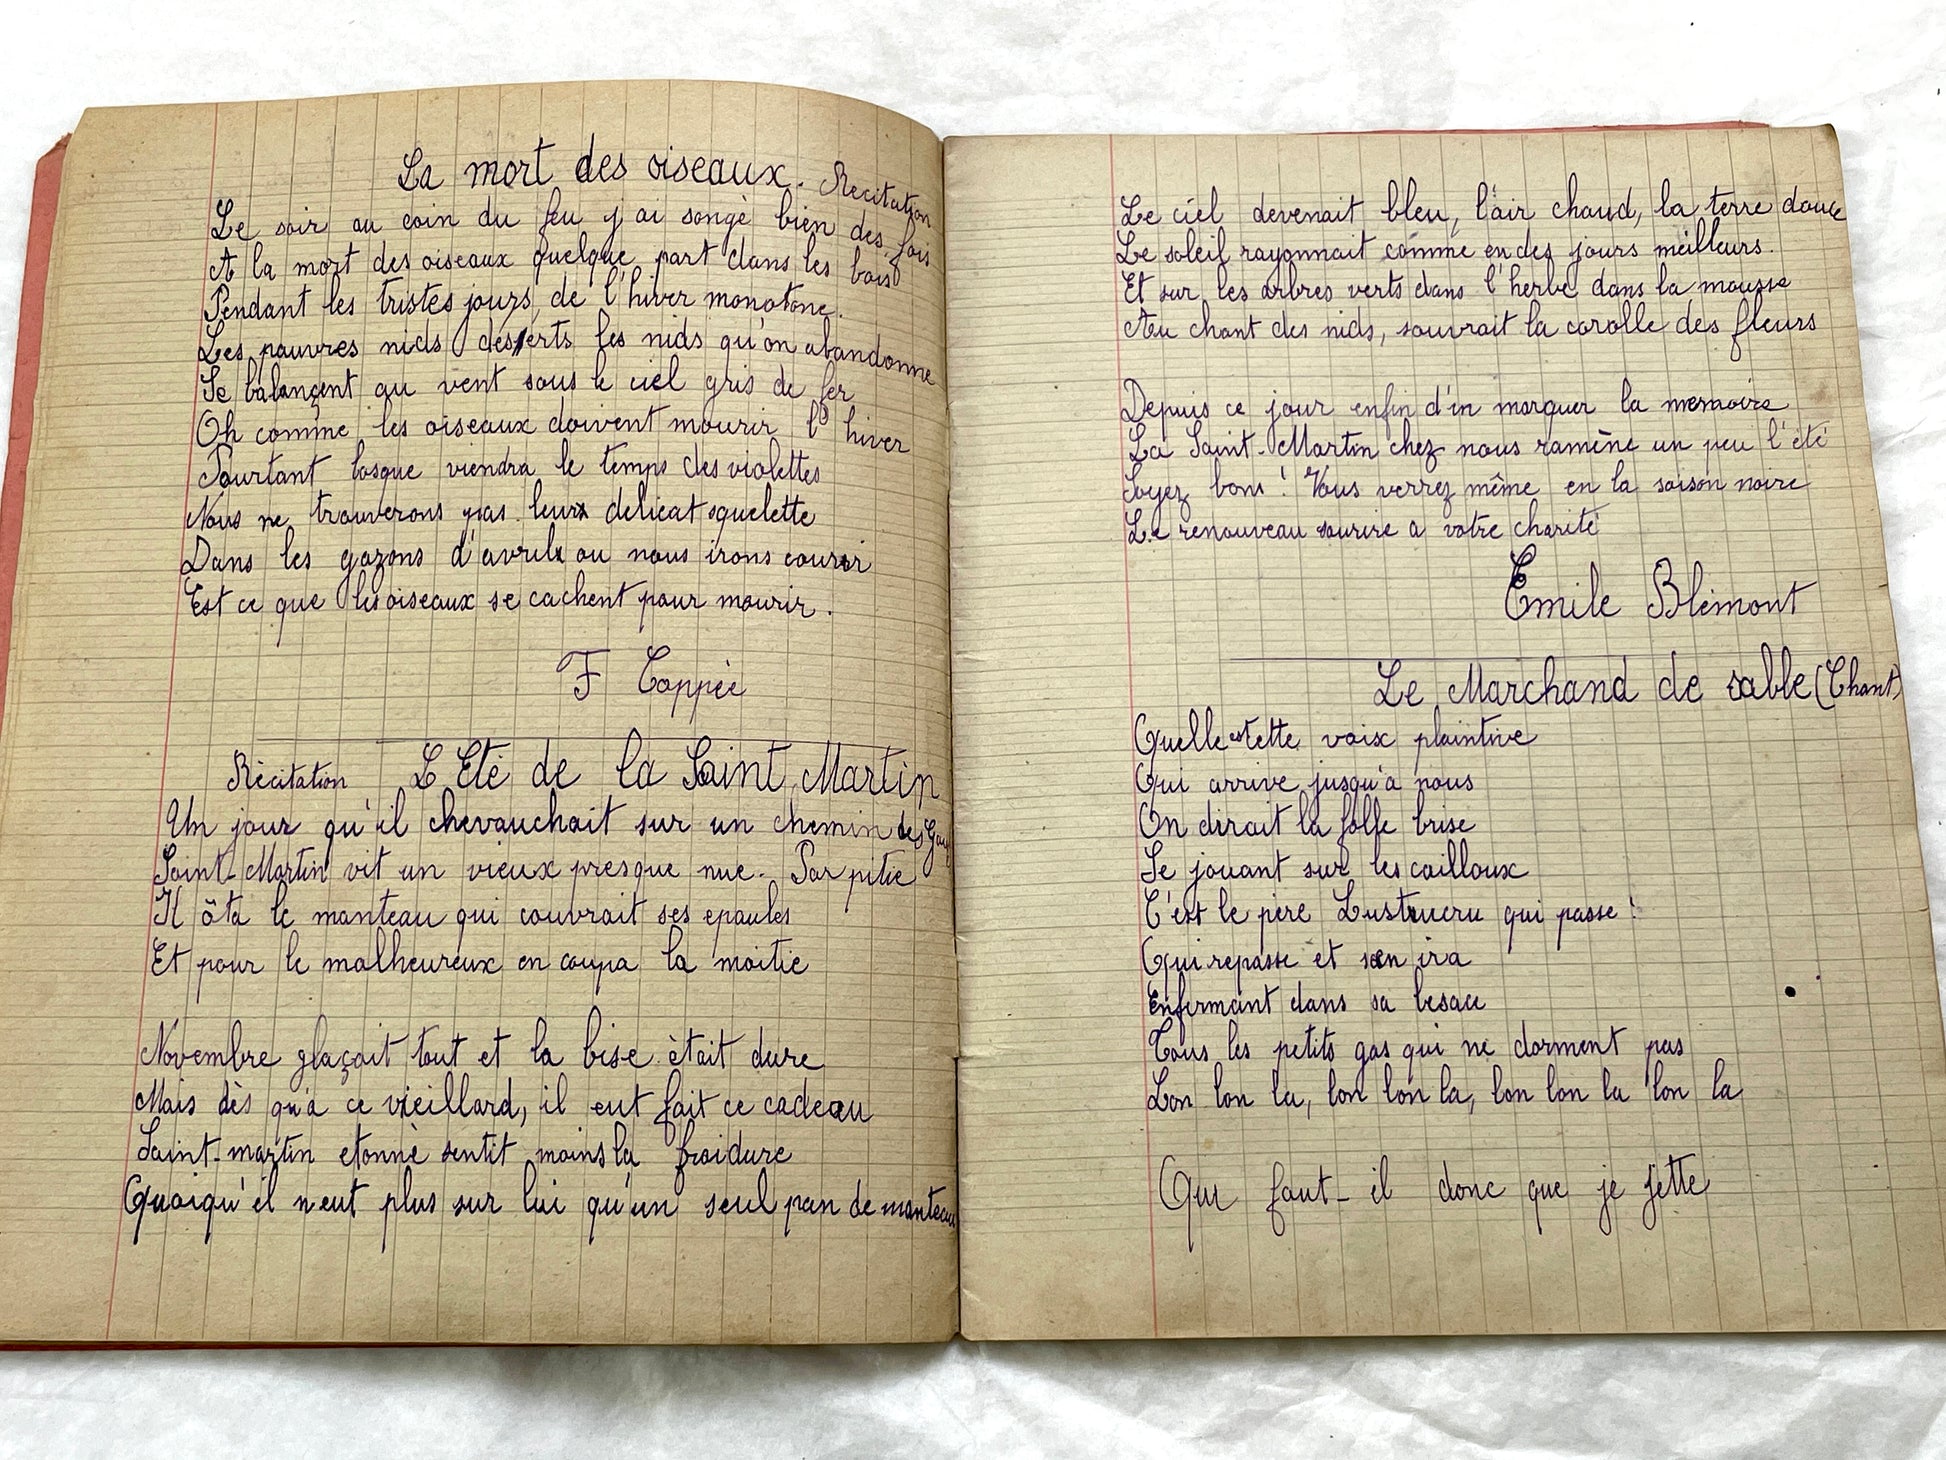 La mort des oiseaux. Récitation
Le soir au coin du feu j'ai songé bien des fois
A la mort des oiseaux quelque part dans les bois
Pendant les tristes jours de l'hiver monotone.
Les pauvres nids déserts les nids qu'on abandonne
Se balançent au vent sous le ciel gris de fer
Oh comme les oiseaux doivent mourir l'hiver
Pourtant losque viendra le temps des violettes
Nous ne trouverons pas leurs delicat squelette
Dans les gazons d'avril ou nous irons courir
Est ce que les oiseaux se cachent pour mourir.
F Coppée
Récitation L Eté de la Saint Martin
Un jour qu'il chevauchait sur un chemin des
Saint-Martin vit un vieux presque nue. Par pitie
Il ôta le manteau qui couvrait ses epaules
Et pour le malheureux en coupa la moitie
Novembre glaçait tout et la bise était dure
Mais dès qu'a ce vieillard, il eut fait ce cadeau
Saint-martin etonné sentit moins la froidure
Quoiqu'il n'eut plus sur lui qu'un seul pan de manteau
Le ciel devenait bleu, l'air chaud, la terre douce
Le soleil rayonnait comme en des jours meilleurs.
Et sur les arbres verts dans l'herbe dans la mousse
Au chant des nids, souvrait la corolle des fleurs
Depuis ce jour enfin d'in marquer la memoire
La Saint-Martin chez nous ramène un peu l'été
Soyez bons! Vous verrez même en la saison noire
Le renouveau sourire a votre charité
Emile Blémont
Le Marchand de sable (Chant)
Quelle est cette voix plaintive
Qui arrive jusqu'a nous
On dirait la folle brise
Se jouant sur les cailloux
C'est le père Lustucru qui passe!
Qui repasse et s'en ira
Enfermant dans sa besace
Tous les petits gas qui ne dorment pas
Lon lon la, lon lon la, lon lon la lon la
Qui faut-il donc que je jette